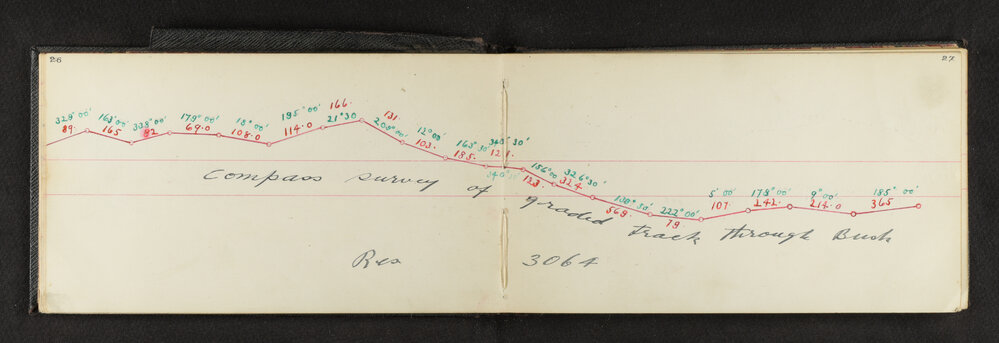 26
27
329°00' 163°00' 338°00' 179°00' 18°00' 195°00' 21°30 208°00' 12°00' 163°30' 343°30' 156°00 326°30' 130°30' 222°00' 5°00' 178°00' 9°00' 185°00'
89. 165 82 69.0 108.0 114.0 166. 131 103. 185. 121. 123. 324. 569. 79. 107. 242. 214.0 365
Compass survey of graded track through Bush
Res 3064